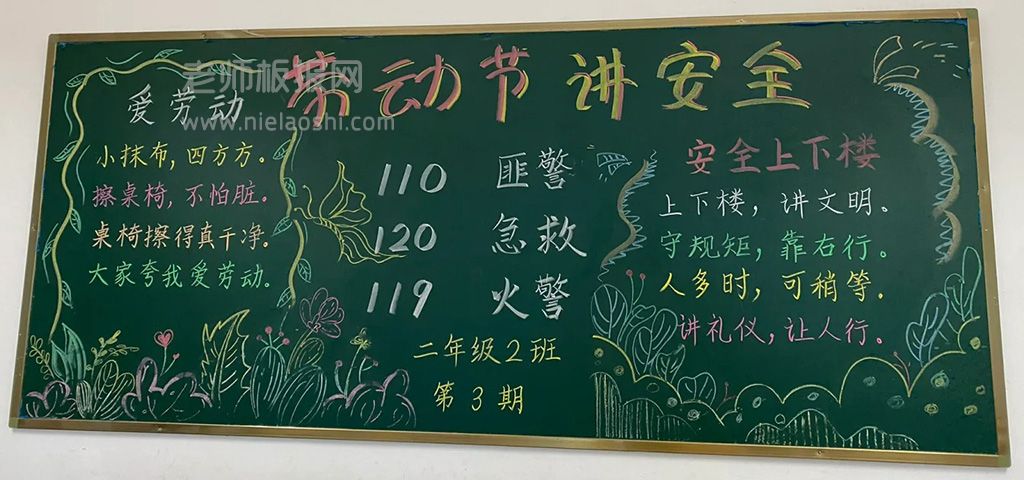 老师板报网
www.nielaoshi.com
劳动节讲安全
爱劳动
小抹布,四方方。
擦桌椅,不怕脏。
桌椅擦得真干净。
大家夸我爱劳动。
110 匪警
120 急救
119 火警
二年级2班
第3期
安全上下楼
上下楼,讲文明。
守规矩,靠右行。
人多时,可稍等.
讲礼仪,让人行。